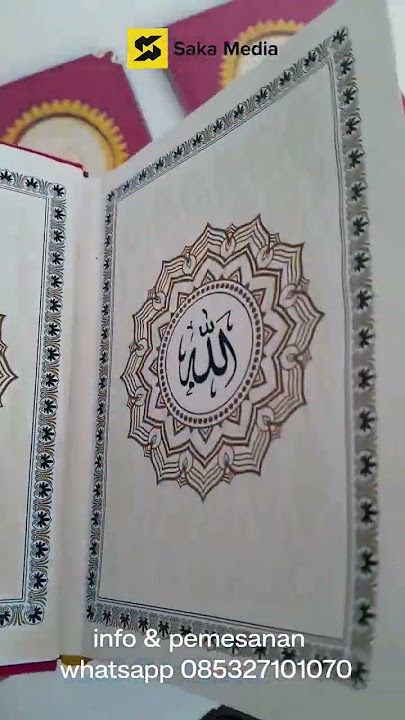 Saka Media
الله
info & pemesanan
whatsapp 085327101070